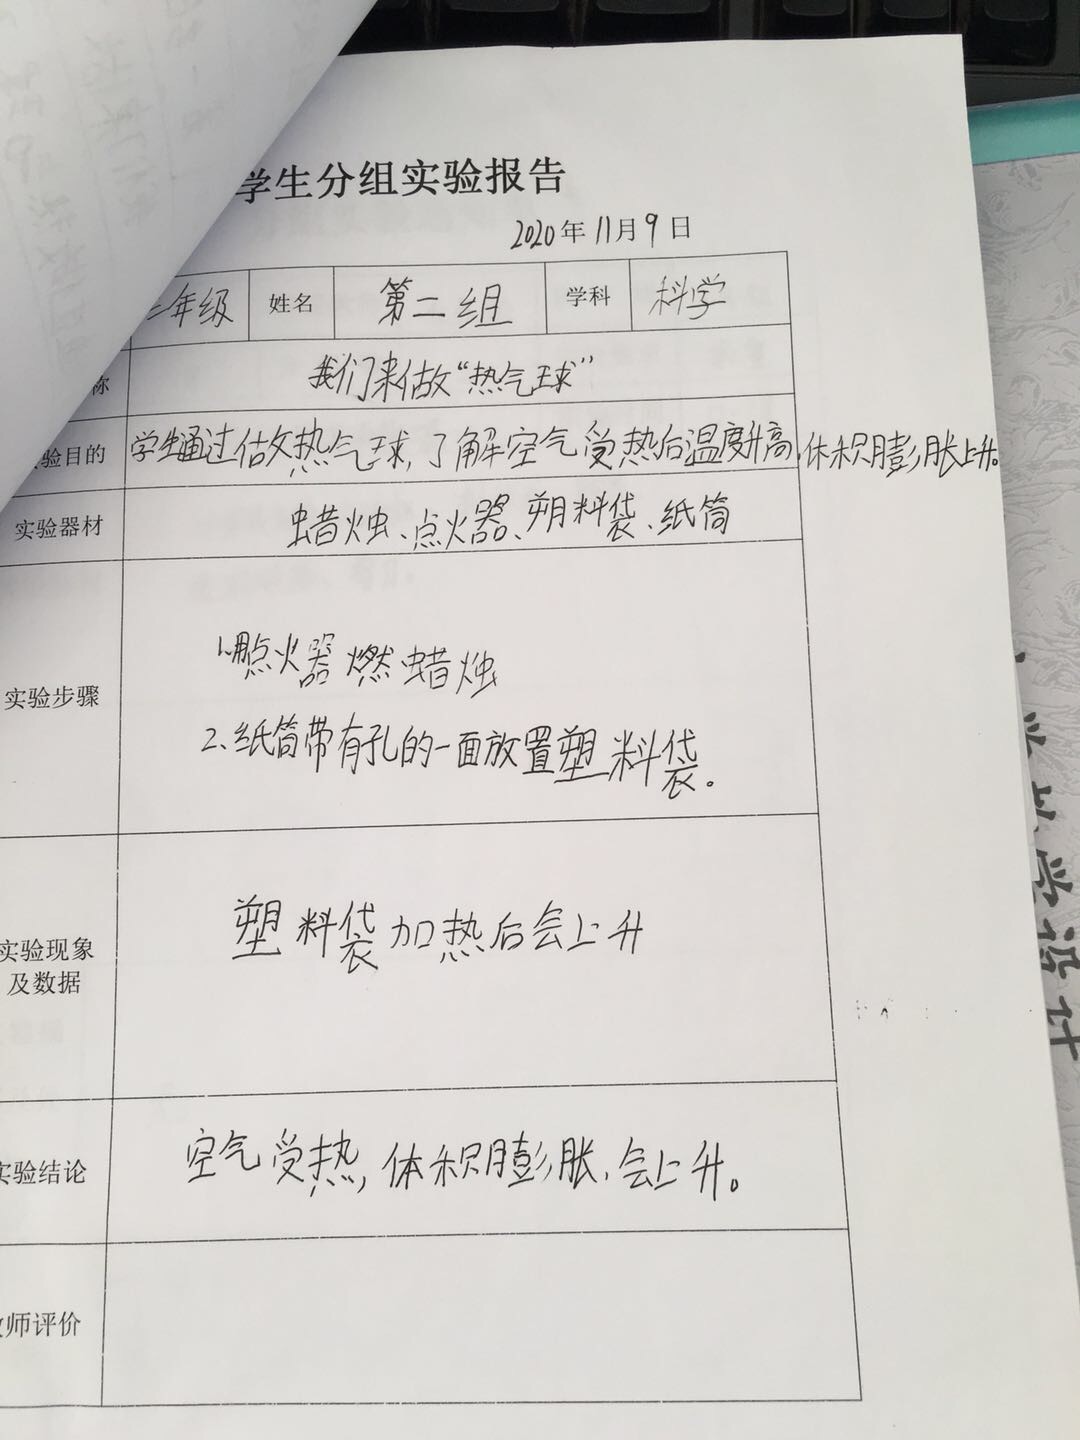 学生分组实验报告
2020年11月9日
年级 姓名 第二组 学科 科学
称 我们来做“热气球”
验目的 学生通过做热气球,了解空气受热后温度升高,体积膨胀上升。
实验器材 蜡烛、点火器、塑料袋、纸筒
实验步骤
1.用点火器燃蜡烛
2.纸筒带有孔的一面放置塑料袋。
实验现象
及数据
塑料袋加热后会上升
实验结论 空气受热,体积膨胀,会上升。
师评价